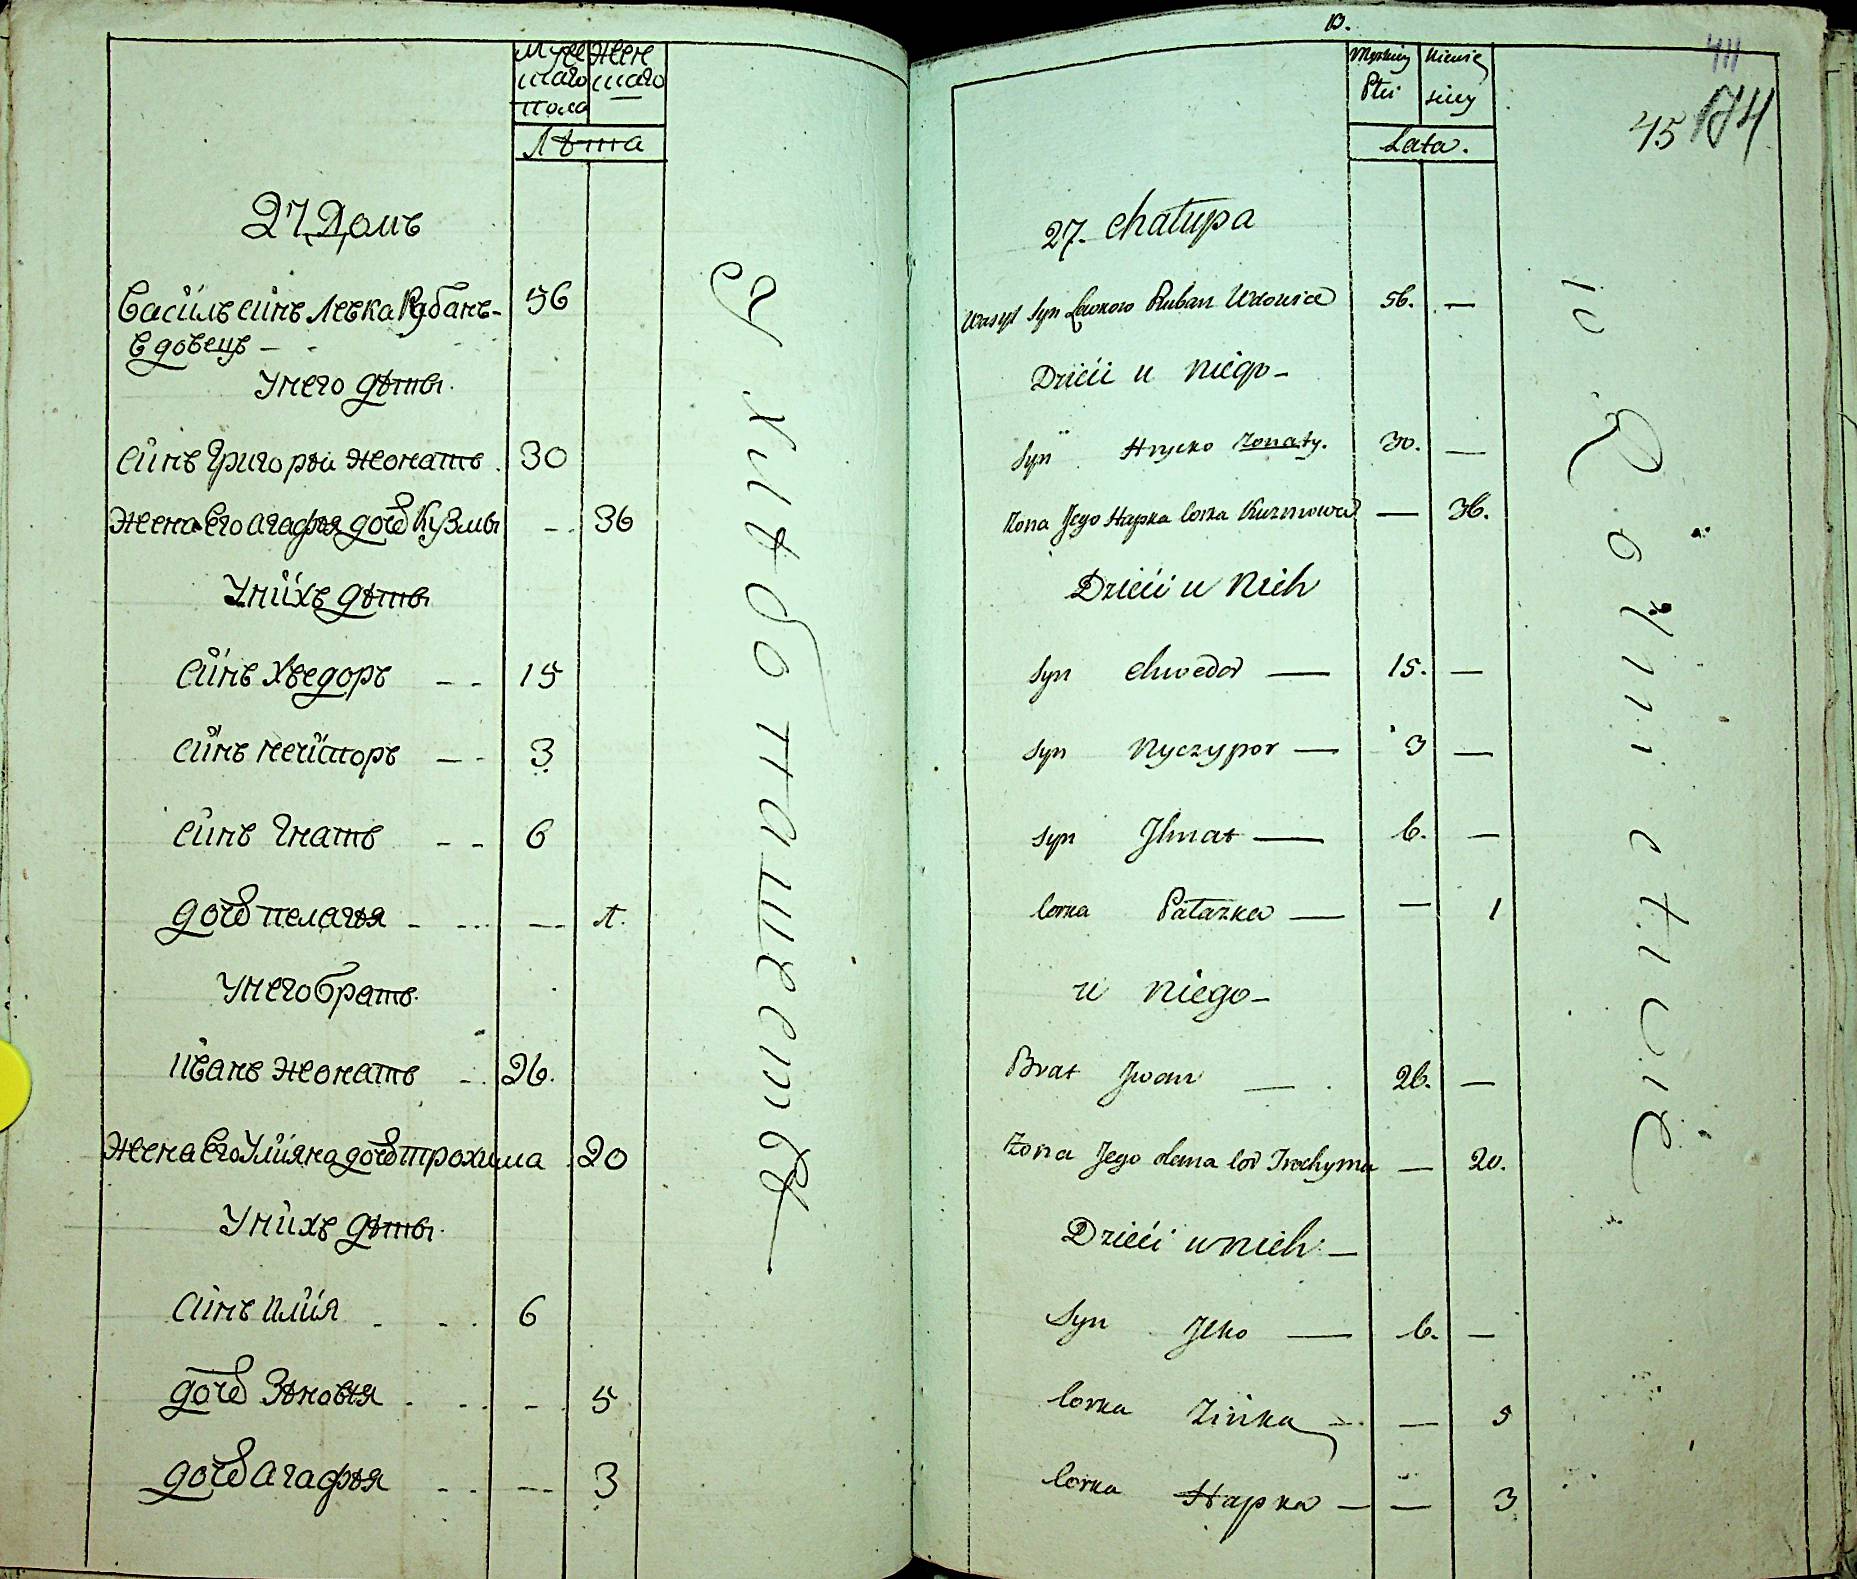 Муже
скаго
пола
Жен
скаго
Лѣта
27 Домъ
Васіиль сінъ Левка Рубанъ-
вдовецъ
Унего дѣты
Сінъ Григорѣй жонатъ 30
Жена Его Агафѣя дочь Кузмы 36
Унихъ дѣты
Сінъ Хведоръ 15
Сінъ Нечипоръ 3
Сінъ Гнатъ 6
дочь Пелагѣя 1
Унего братъ
Иванъ жонатъ 26
Жена Его Улияна дочь Трохима 20
Унихъ дѣты
Сінъ Илия 6
дочь Зѣновѣя 5
дочь Агафѣя 3
13.
Męskiey
Płci
Lata.
411
45 174
27. Chałupa
Wasyl Syn Lewkow Ruban Wdowiec 56. —
Dzieći u niego
Syn Hrycko Żonaty. 30. —
Żona Jego Hapka Corka Kuzmowa — 36.
Dzieći u Nich
Syn Chwedor — 15. —
Syn Nyczypor — 3 —
Syn Ihnat — 6. —
Corka Pałazka — — 1
u niego
Brat Jwan 26. —
Żona Jego Cor Trochyma — 20.
Dzieći u nich —
Syn Jlko — 6. —
Corka Zińka — — 5
Corka Hapka — — 3